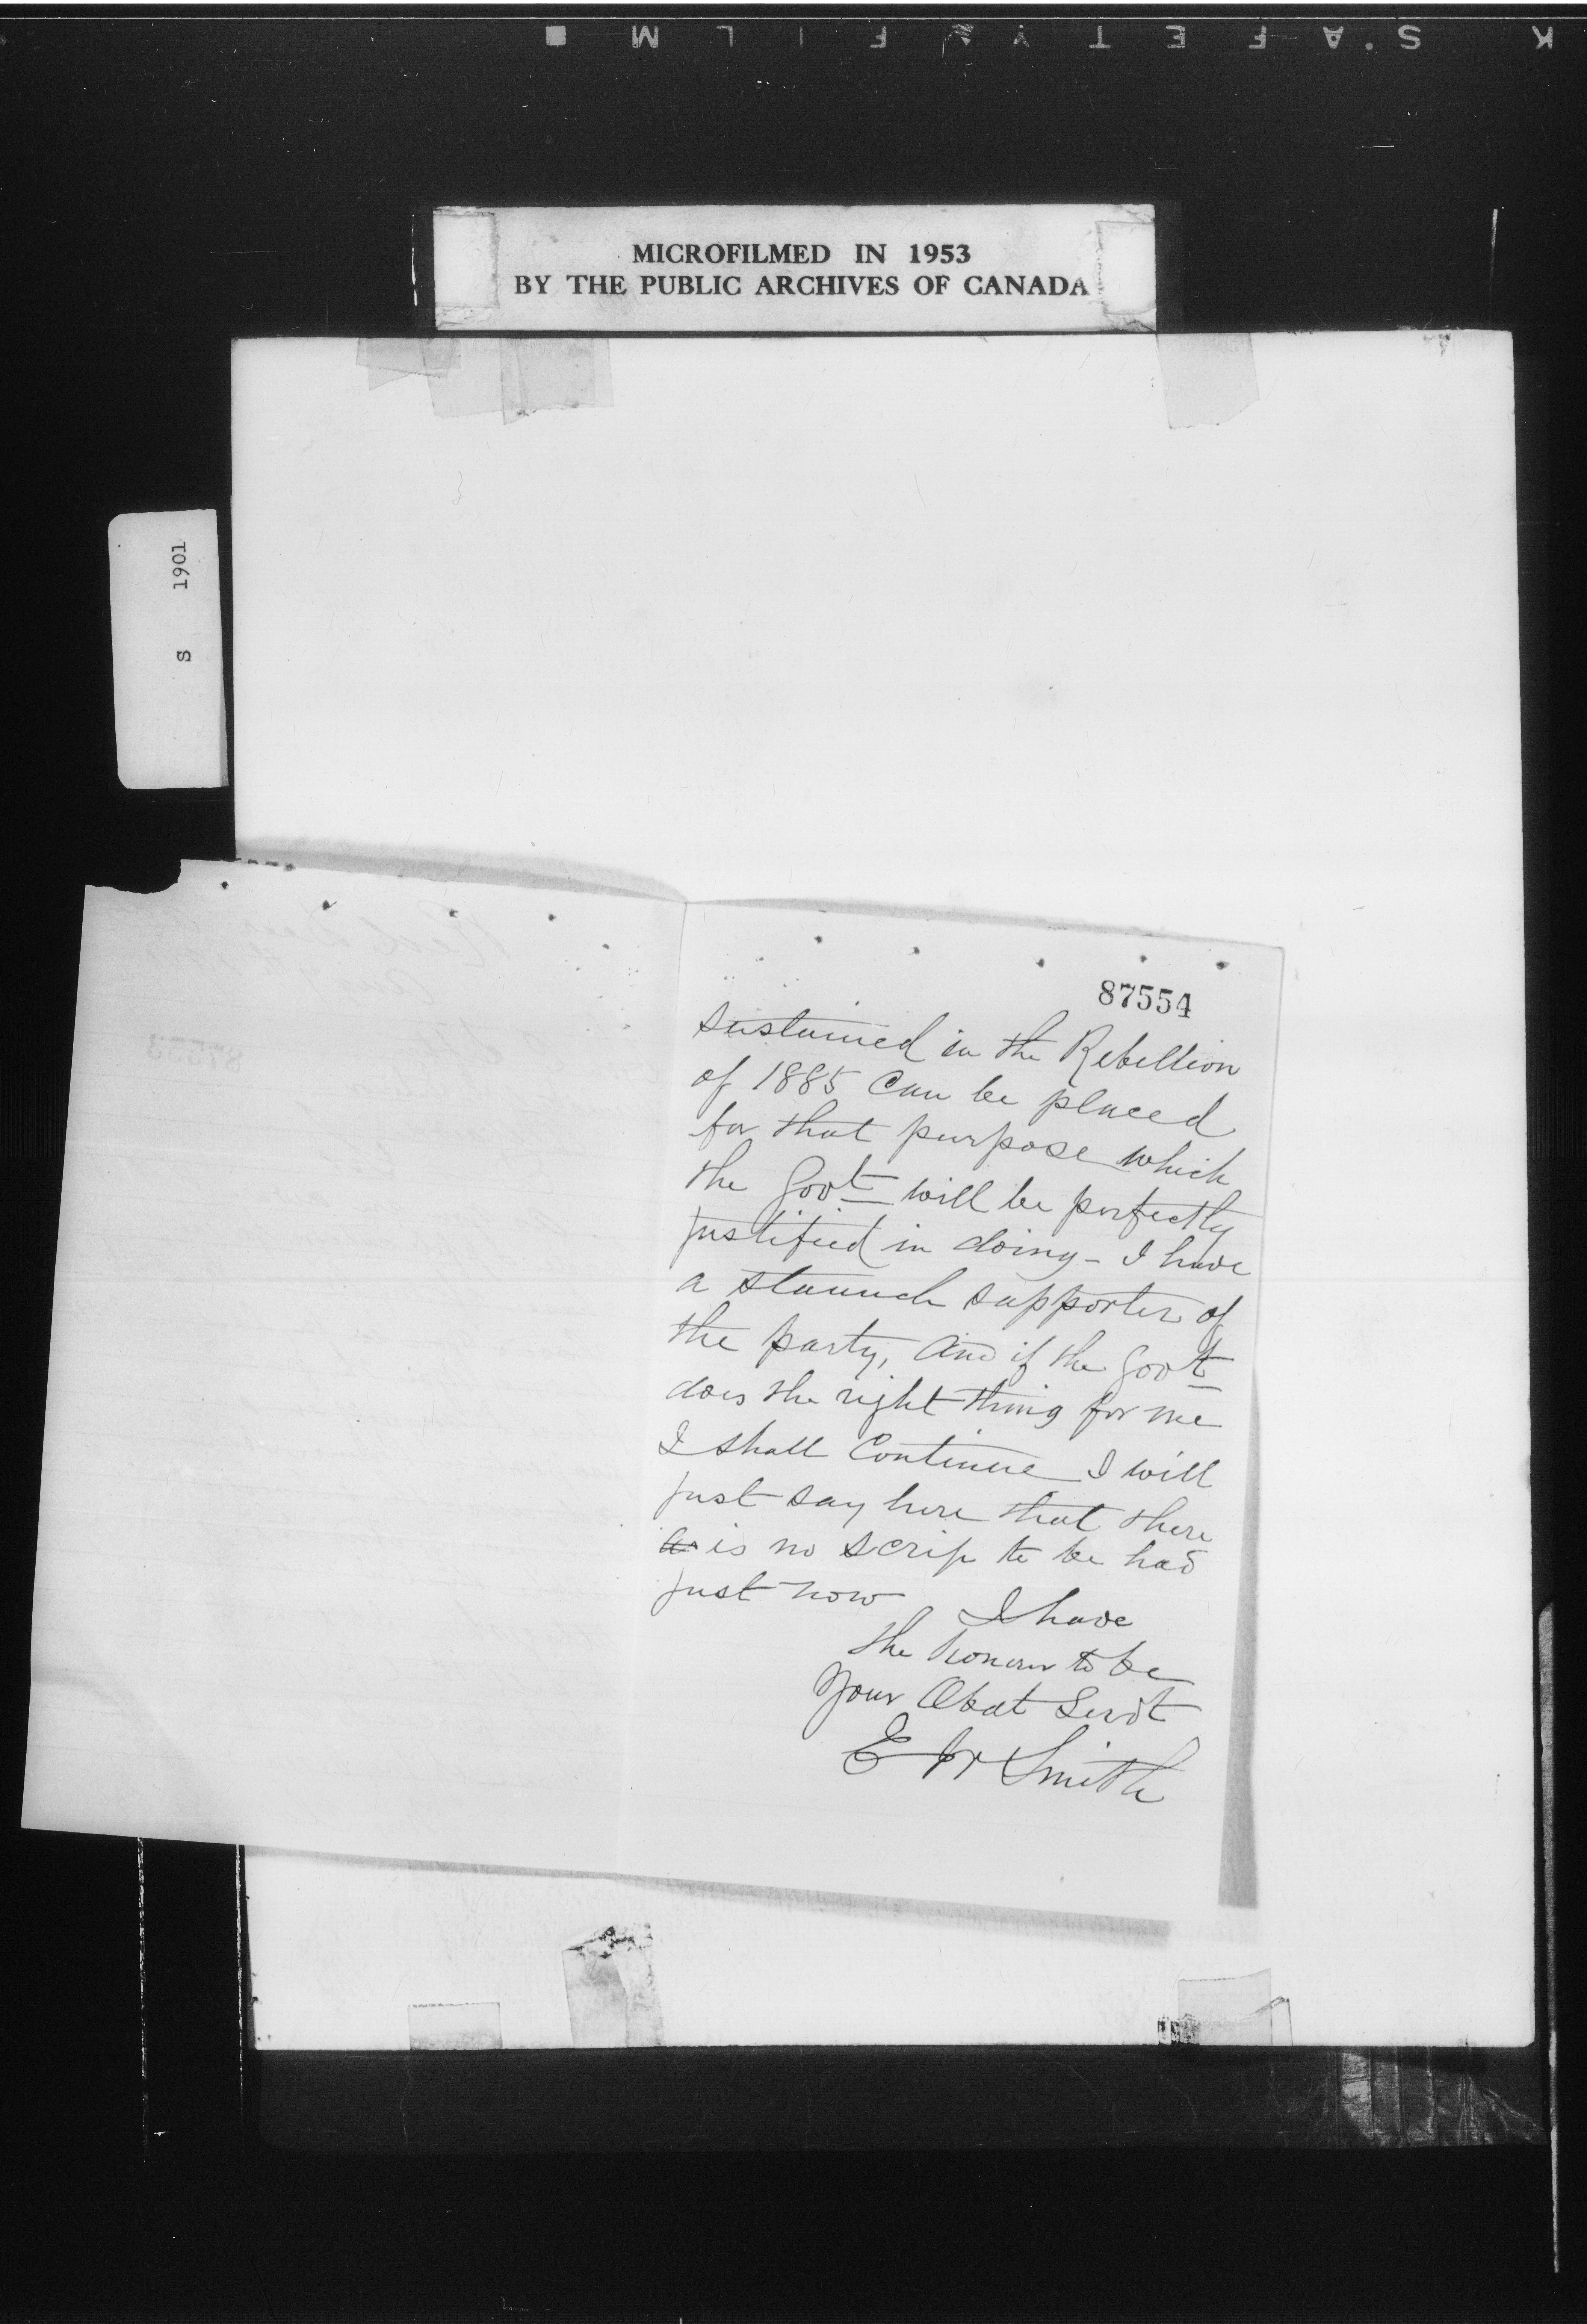 K S.AFETY FILM ■
MICROFILMED IN 1953
BY THE PUBLIC ARCHIVES OF CANADA
S 1901
87554
sustained in the Rebellion
of 1885 Can be placed
for that purpose which
the Govt will be perfectly
justified in doing - I have
a staunch supporter of
the party, And if the Govt
does the right thing for me
I shall Continue I will
just say here that there
a is no scrip to be had
just now I have
the honour to be
Your Obdt Servt
E Smith
87553